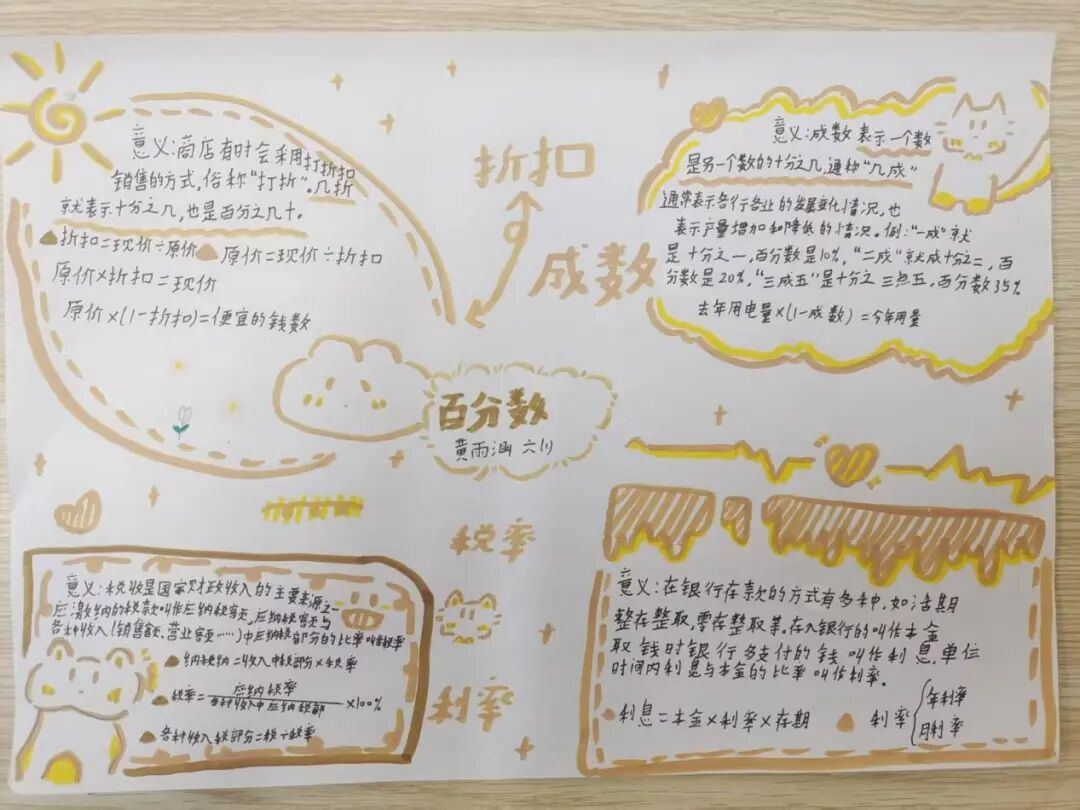 折扣
成数
百分数
黄雨涵 六(1)
税率
利率
意义:商店有时会采用打折扣
销售的方式,俗称“打折”.几折
就表示十分之几,也是百分之几十。
折扣=现价÷原价 原价=现价÷折扣
原价×折扣=现价
原价×(1-折扣)=便宜的钱数
意义:成数表示一个数
是另一个数的十分之几,通称“几成”
通常表示各行各业的发展变化情况。也
表示产量增加和降低的情况。例:“一成”就
是十分之一,百分数是10%,“二成”就成十分之二,百
分数是20%,“三成五”是十分之三点五,百分数35%
去年用电量×(1-成数)=今年用量
意义:税收是国家财政收入的主要来源之一
应缴纳的税款叫作应纳税额,应纳税额与
各种收入(销售额、营业额……)中应纳税部分的比率叫做税率
纳税纳=收入中税部分×税率
税率=应纳税率/各种收入中应纳税部×100%
各种收入税部分=税÷税率
意义:在银行存款的方式有多种,如活期
整存整取,零存整取等,存入银行的叫作本金
取钱时银行多支付的钱叫作利息,单位
时间内利息与本金的比率叫作利率。
利息=本金×利率×存期 利率{年利率
月利率